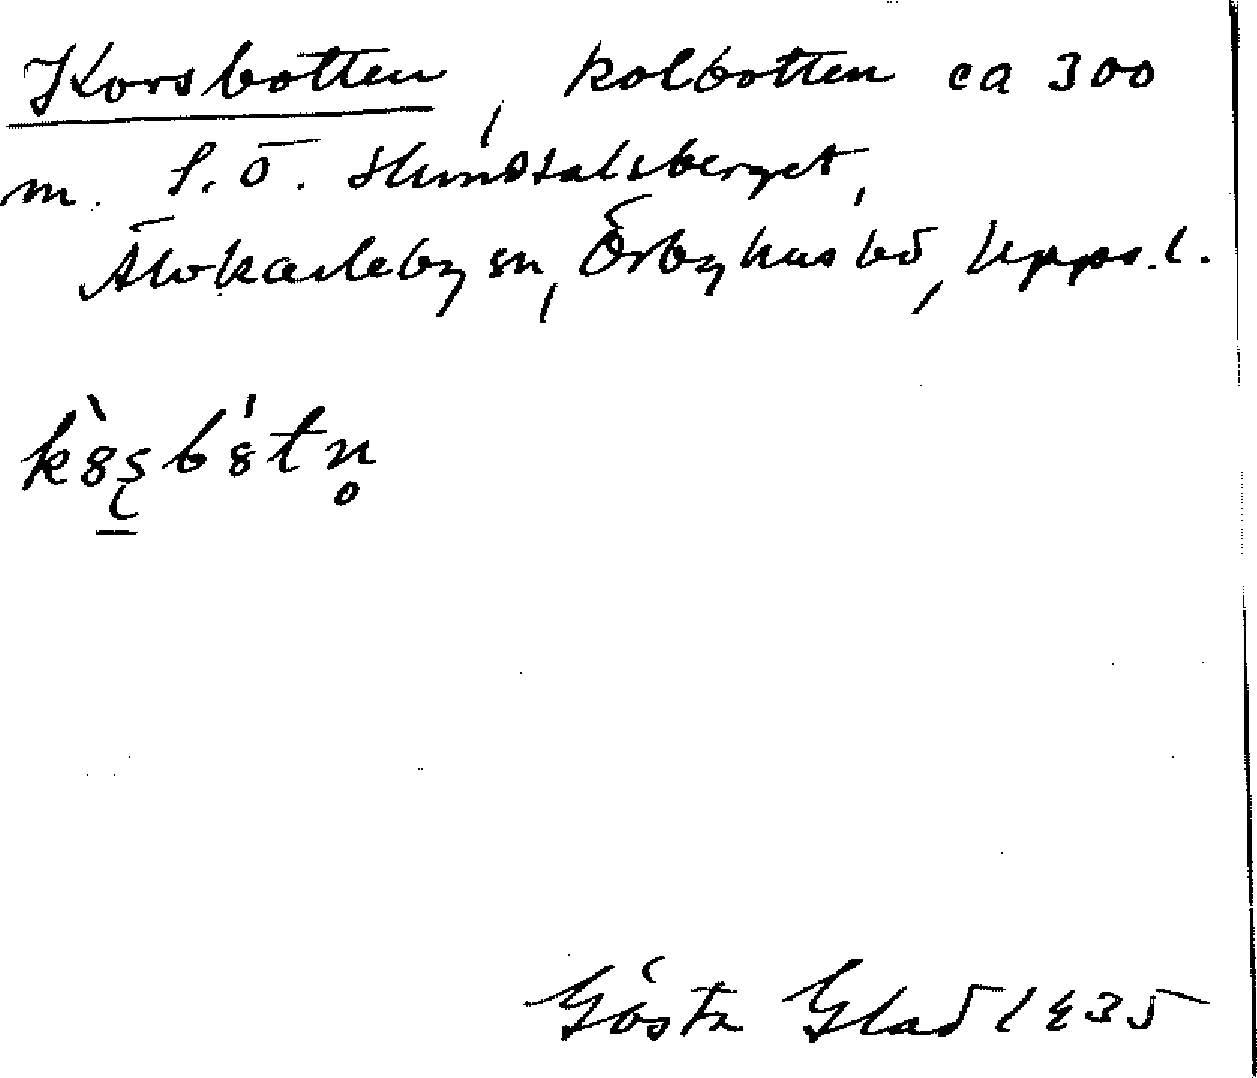 Korsbotten, kolbotten ca 300
m. S. Ö.
Älvkarleby sn, Örbyhus hd, Upps. l.
Gösta Glad 1935